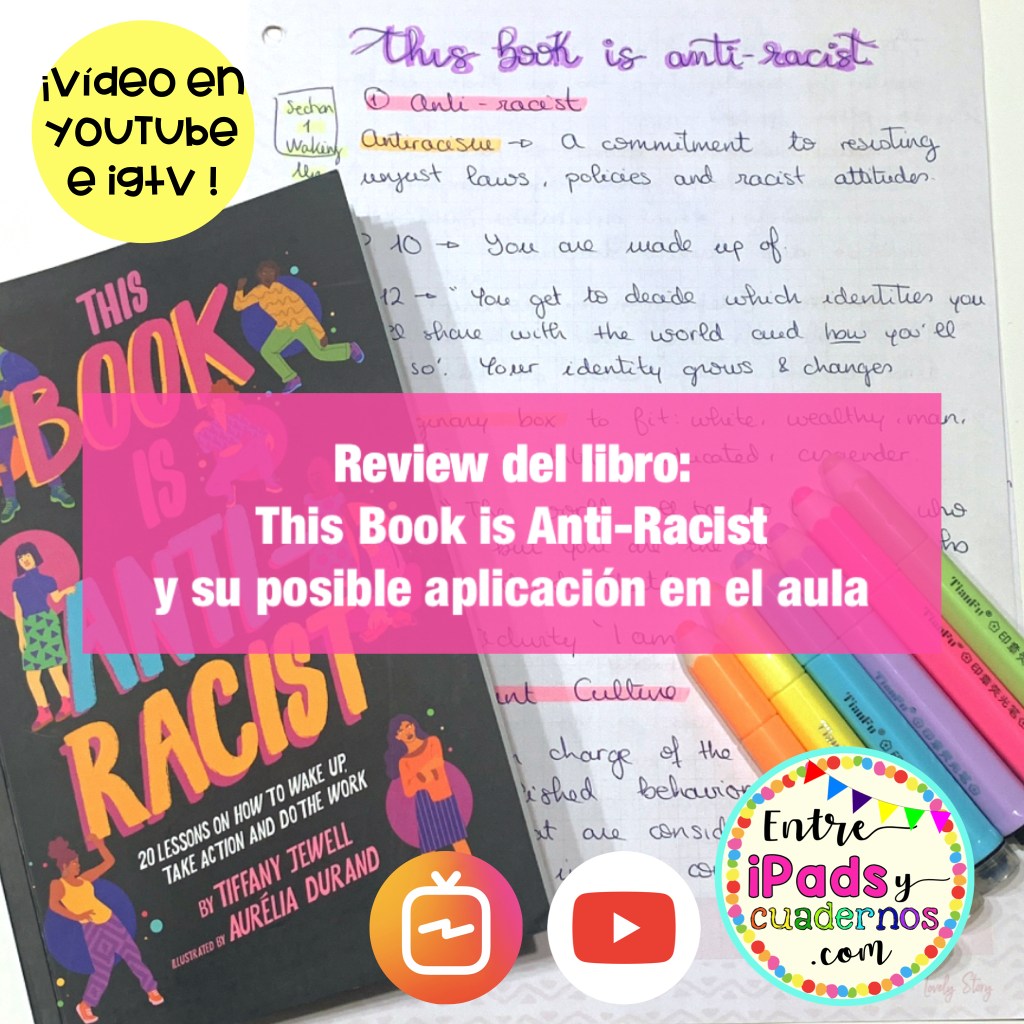 ¡Vídeo en
YouTube
e igtv !
This book is anti-racist
Section
1
Waking
① Anti-racist
Antiracism → A commitment to resisting
unjust laws, policies and racist attitudes.
10 → You are made up of.
12 → "You get to decide which identities you
share with the world and how you'll
so". Your identity grows & changes
box to fit: white, wealthy, man,
Review del libro:
This Book is Anti-Racist
y su posible aplicación en el aula
"I am
Culture
charge of the
behavior
are
THIS
BOOK
IS
ANTI-
RACIST
20 LESSONS ON HOW TO WAKE UP,
TAKE ACTION AND DO THE WORK
BY TIFFANY JEWELL
ILLUSTRATED BY AURÉLIA DURAND
TianFu®
TianFu®
TianFu®
TianFu®
Entre
iPads y
cuadernos
.com
Lovely Story